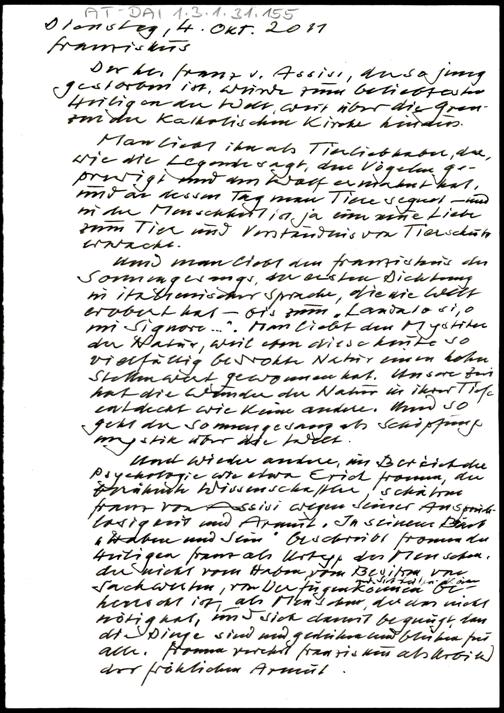 AT-DAI 1.3.1.31.155
Dienstag, 4. Okt. 2011
Franziskus
Der hl. Franz v. Assisi, der so jung
gestorben ist, wurde zum beliebtesten
Heiligen der Welt, weit über die Gren-
zen der Katholischen Kirche hinaus.
Man liebt ihn als Tierliebhaber, der,
wie die Legende sagt, den Vögeln ge-
predigt und den Wolf ermahnt hat,
und an dessen Tag man Tiere segnet – und
in der Menschheit ist ja eine neue Liebe
zum Tier und Verständnis von Tierschutz
erwacht.
Und man liebt den Franziskus des
Sonnengesangs, der ersten Dichtung
in italienischer Sprache, die die Welt
erobert hat – bis zum „Laudato si, o
mi Signore...". Man liebt den Mystiker
der Natur, weil eben die heute so
vielfältig bedrohte Natur einen hohen
Stellenwert gewonnen hat. Unsere Zeit
hat die Wunder der Natur in ihrer Tiefe
entdeckt wie keine andere. Und so
geht der Sonnengesang als Schöpfungs
mystik über die Welt.
Und wieder andere, im Bereich der
Psychologie wie etwa Erich Fromm, der
berühmte Wissenschaftler, schätzen
Franz von Assisi wegen seiner Anspruchs
losigkeit und Armut. In seinem Buch
„Haben und Sein" beschreibt Fromm den
Heiligen Franz als Urtyp des Menschen,
der nicht vom Haben, vom Besitzen von
Sachwerten, von Verfügenkönnen be
herrscht ist, als Menschen, der das nicht
nötig hat, und sich damit begnügt, dass
die Dinge sind und gedeihen und blühen für
alle. Fromm verehrt Franziskus als Urbild
der fröhlichen Armut.